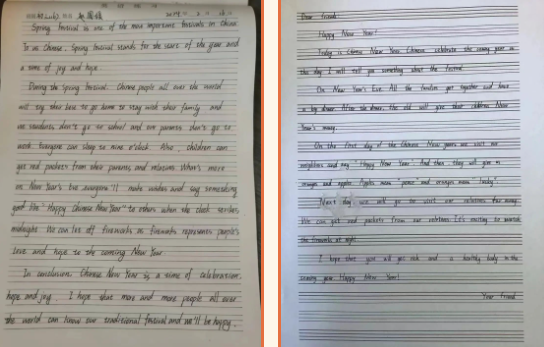 Spring festival is one of the most important festivals in China
To us Chinese, Spring festival stands for the start of the year and
a time of joy and hope.
During the Spring festival, Chinese people all over the world
will try their best to go home to stay with their family and
we students don't go to school and our parents don't go to
work. Everyone can sleep to nine o'clock. Also, children can
get red packets from their parents and relatives. What's more
on New Year's Eve everyone'll make wishes and say something
good like "Happy Chinese New Year" to others when the clock strikes
midnight. We can let off fireworks as fireworks represents people's
love and hope to the coming New Year.
In conclusion, Chinese New Year is a time of celebration,
hope and joy. I hope that more and more people all over
the world can know our traditional festival and we'll be happy.
Dear friend:
Happy New Year!
Today is Chinese New Year. Chinese celebrate the coming year on
this day. I will tell you something about the festival.
On New Year's Eve. All the families get together and have
a big dinner. After the dinner, the old will give their children New
Year's money.
On the first day of the Chinese New year, we visit our
neighbors and say "Happy New Year" And then they will give us
oranges and apples. Apples mean "peace" and oranges mean "lucky".
Next day we will go to visit our relatives far away.
We can get red packets from our relatives. It's exciting to
the fireworks at night.
I hope that you will get rich and a healthy body in the
coming year. Happy New Year!
Your friend